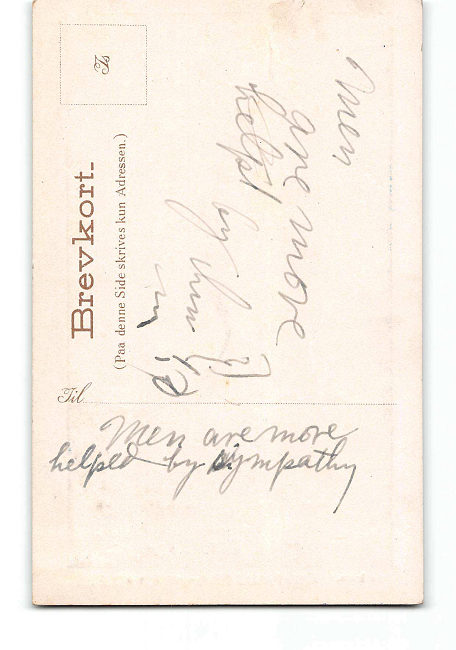 Brevkort.
(Paa denne Side skrives kun Adressen.)
Til
Men
are more
helpt
by
Men are more
helped by sympathy